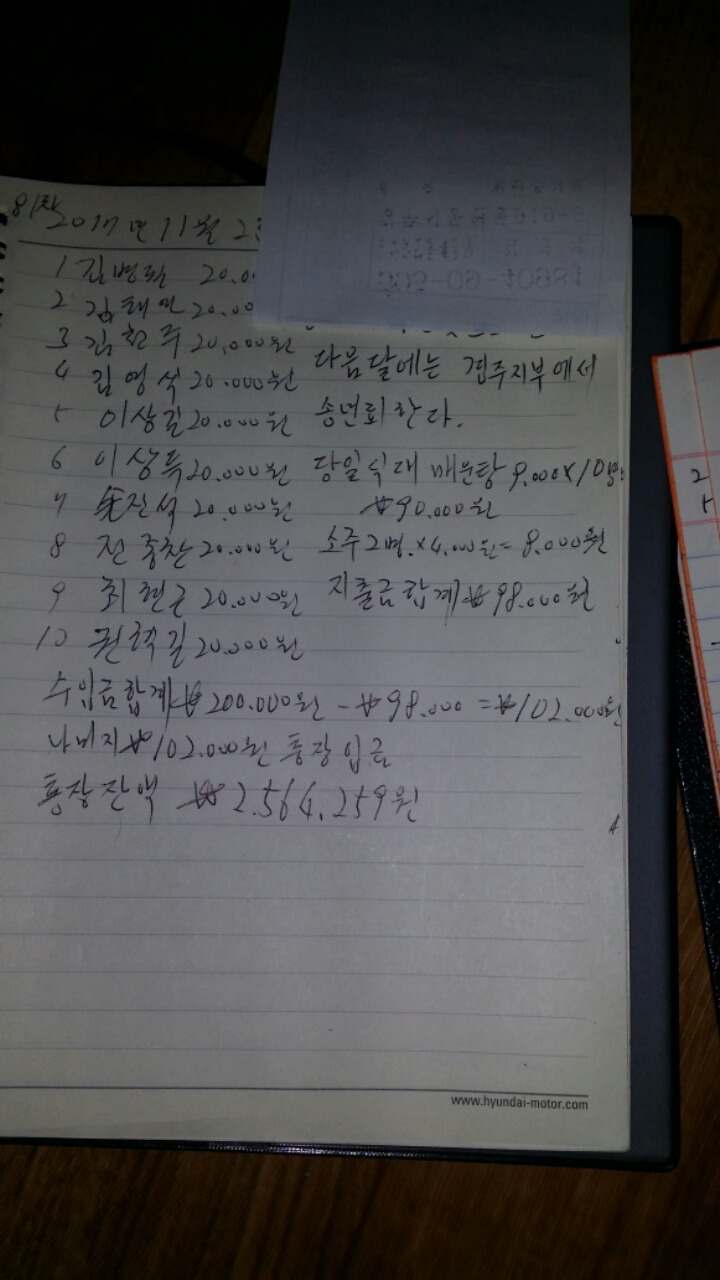 81차
2017년 11월 2
1 김병락 20.0
2 김태 20.00
3 김 주 20,000원
다음달에는 경주지부에서
4 김영석 20.000원
5 이상길 20.000원 송년회 한다.
6 이상득 20.000원 당일식대 매운탕 9.000X10명
7 진석 20.000원 ₩90.000원
8 전종찬 20.000원 소주2병.×4.000원=8.000원
9 최현근 20.000원 지출금합계₩98.000원
10 권혁길 20.000원
수입금합계₩200.000원-₩98.000=₩102.000원
나머지₩102.000원 통장입금
통장잔액 ₩2.564.259원
www.hyundai-motor.com
2